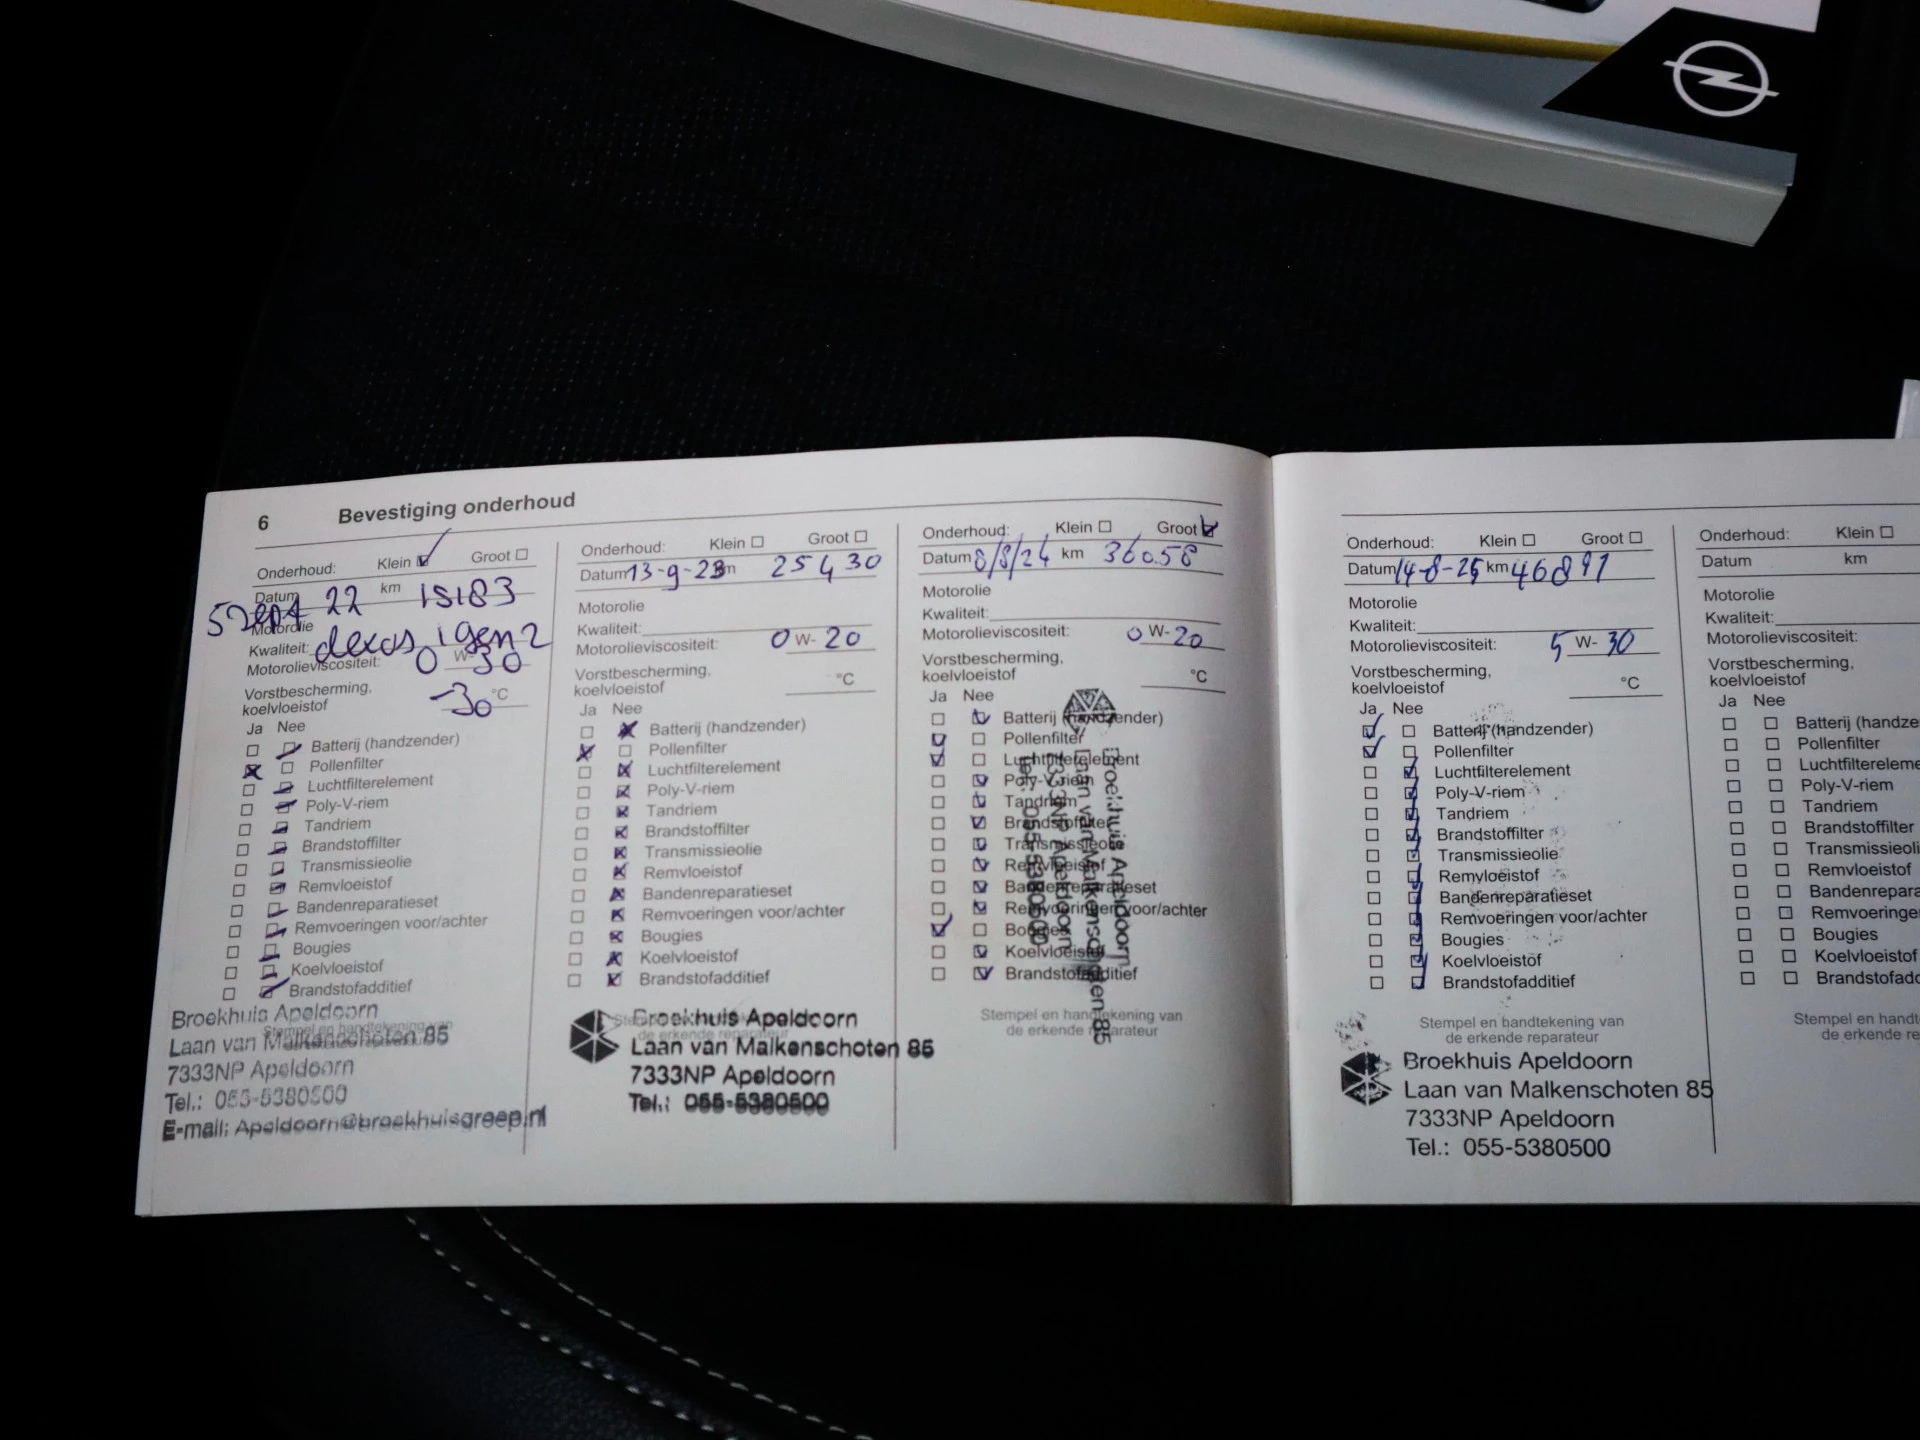 6 Bevestiging onderhoud
Onderhoud: Klein Groot
Datum 5 Sept 22 km 15183
Motorolie
Kwaliteit: dexos 1 gen 2
Motorolieviscositeit: 0 W- 30
Vorstbescherming,
koelvloeistof -30 °C
Ja Nee
Batterij (handzender)
Pollenfilter
Luchtfilterelement
Poly-V-riem
Tandriem
Brandstoffilter
Transmissieolie
Remvloeistof
Bandenreparatieset
Remvoeringen voor/achter
Bougies
Koelvloeistof
Brandstofadditief
Stempel en handtekening van
de erkende reparateur
Broekhuis Apeldoorn
Laan van Malkenschoten 85
7333NP Apeldoorn
Tel.: 055-5380500
E-mail: Apeldoorn@broekhuisgroep.nl
Onderhoud: Klein Groot
Datum 13-9-23 km 25430
Motorolie
Kwaliteit:
Motorolieviscositeit: 0 W- 20
Vorstbescherming,
koelvloeistof °C
Ja Nee
Batterij (handzender)
Pollenfilter
Luchtfilterelement
Poly-V-riem
Tandriem
Brandstoffilter
Transmissieolie
Remvloeistof
Bandenreparatieset
Remvoeringen voor/achter
Bougies
Koelvloeistof
Brandstofadditief
Stempel en handtekening van
de erkende reparateur
Broekhuis Apeldoorn
Laan van Malkenschoten 85
7333NP Apeldoorn
Tel.: 055-5380500
Onderhoud: Klein Groot
Datum 8/8/24 km 36058
Motorolie
Kwaliteit:
Motorolieviscositeit: 0 W- 20
Vorstbescherming,
koelvloeistof °C
Ja Nee
Batterij (handzender)
Pollenfilter
Luchtfilterelement
Poly-V-riem
Tandriem
Brandstoffilter
Transmissieolie
Remvloeistof
Bandenreparatieset
Remvoeringen voor/achter
Bougies
Koelvloeistof
Brandstofadditief
Stempel en handtekening van
de erkende reparateur
Broekhuis Apeldoorn
Laan van Malkenschoten 85
7333NP Apeldoorn
Tel.: 055-5380500
Onderhoud: Klein Groot
Datum 14-8-25 km 46891
Motorolie
Kwaliteit:
Motorolieviscositeit: 5 W- 30
Vorstbescherming,
koelvloeistof °C
Ja Nee
Batterij (handzender)
Pollenfilter
Luchtfilterelement
Poly-V-riem
Tandriem
Brandstoffilter
Transmissieolie
Remvloeistof
Bandenreparatieset
Remvoeringen voor/achter
Bougies
Koelvloeistof
Brandstofadditief
Stempel en handtekening van
de erkende reparateur
Broekhuis Apeldoorn
Laan van Malkenschoten 85
7333NP Apeldoorn
Tel.: 055-5380500
Onderhoud: Klein
Datum km
Motorolie
Kwaliteit:
Motorolieviscositeit:
Vorstbescherming,
koelvloeistof
Ja Nee
Batterij (handze
Pollenfilter
Luchtfiltereleme
Poly-V-riem
Tandriem
Brandstoffilter
Transmissieoli
Remvloeistof
Bandenrepara
Remvoeringe
Bougies
Koelvloeistof
Brandstofadd
Stempel en hand
de erkende re